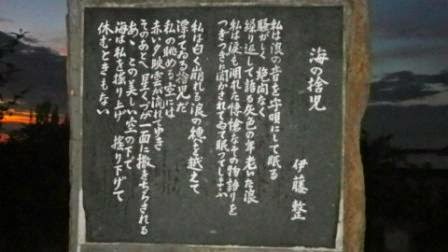 海の捨児
伊藤整
私は浪の音を守唄にして眠る
騒がしく 絶間なく
繰り返して語る灰色の年老いた浪
私は涙も涸れた凄愴なその物語りを
つぎつぎに聞かされて眠ってしまふ
私は白く崩れる浪の穂を越えて
漂ってゐる捨児だ
私の眺める空には
赤い夕映雲が流れてゆき
そのあとへ 星くづが一面に撒きちらされる
あゝ この美しい空の下で
海は私を揺り上げ 揺り下げて
休むときもない